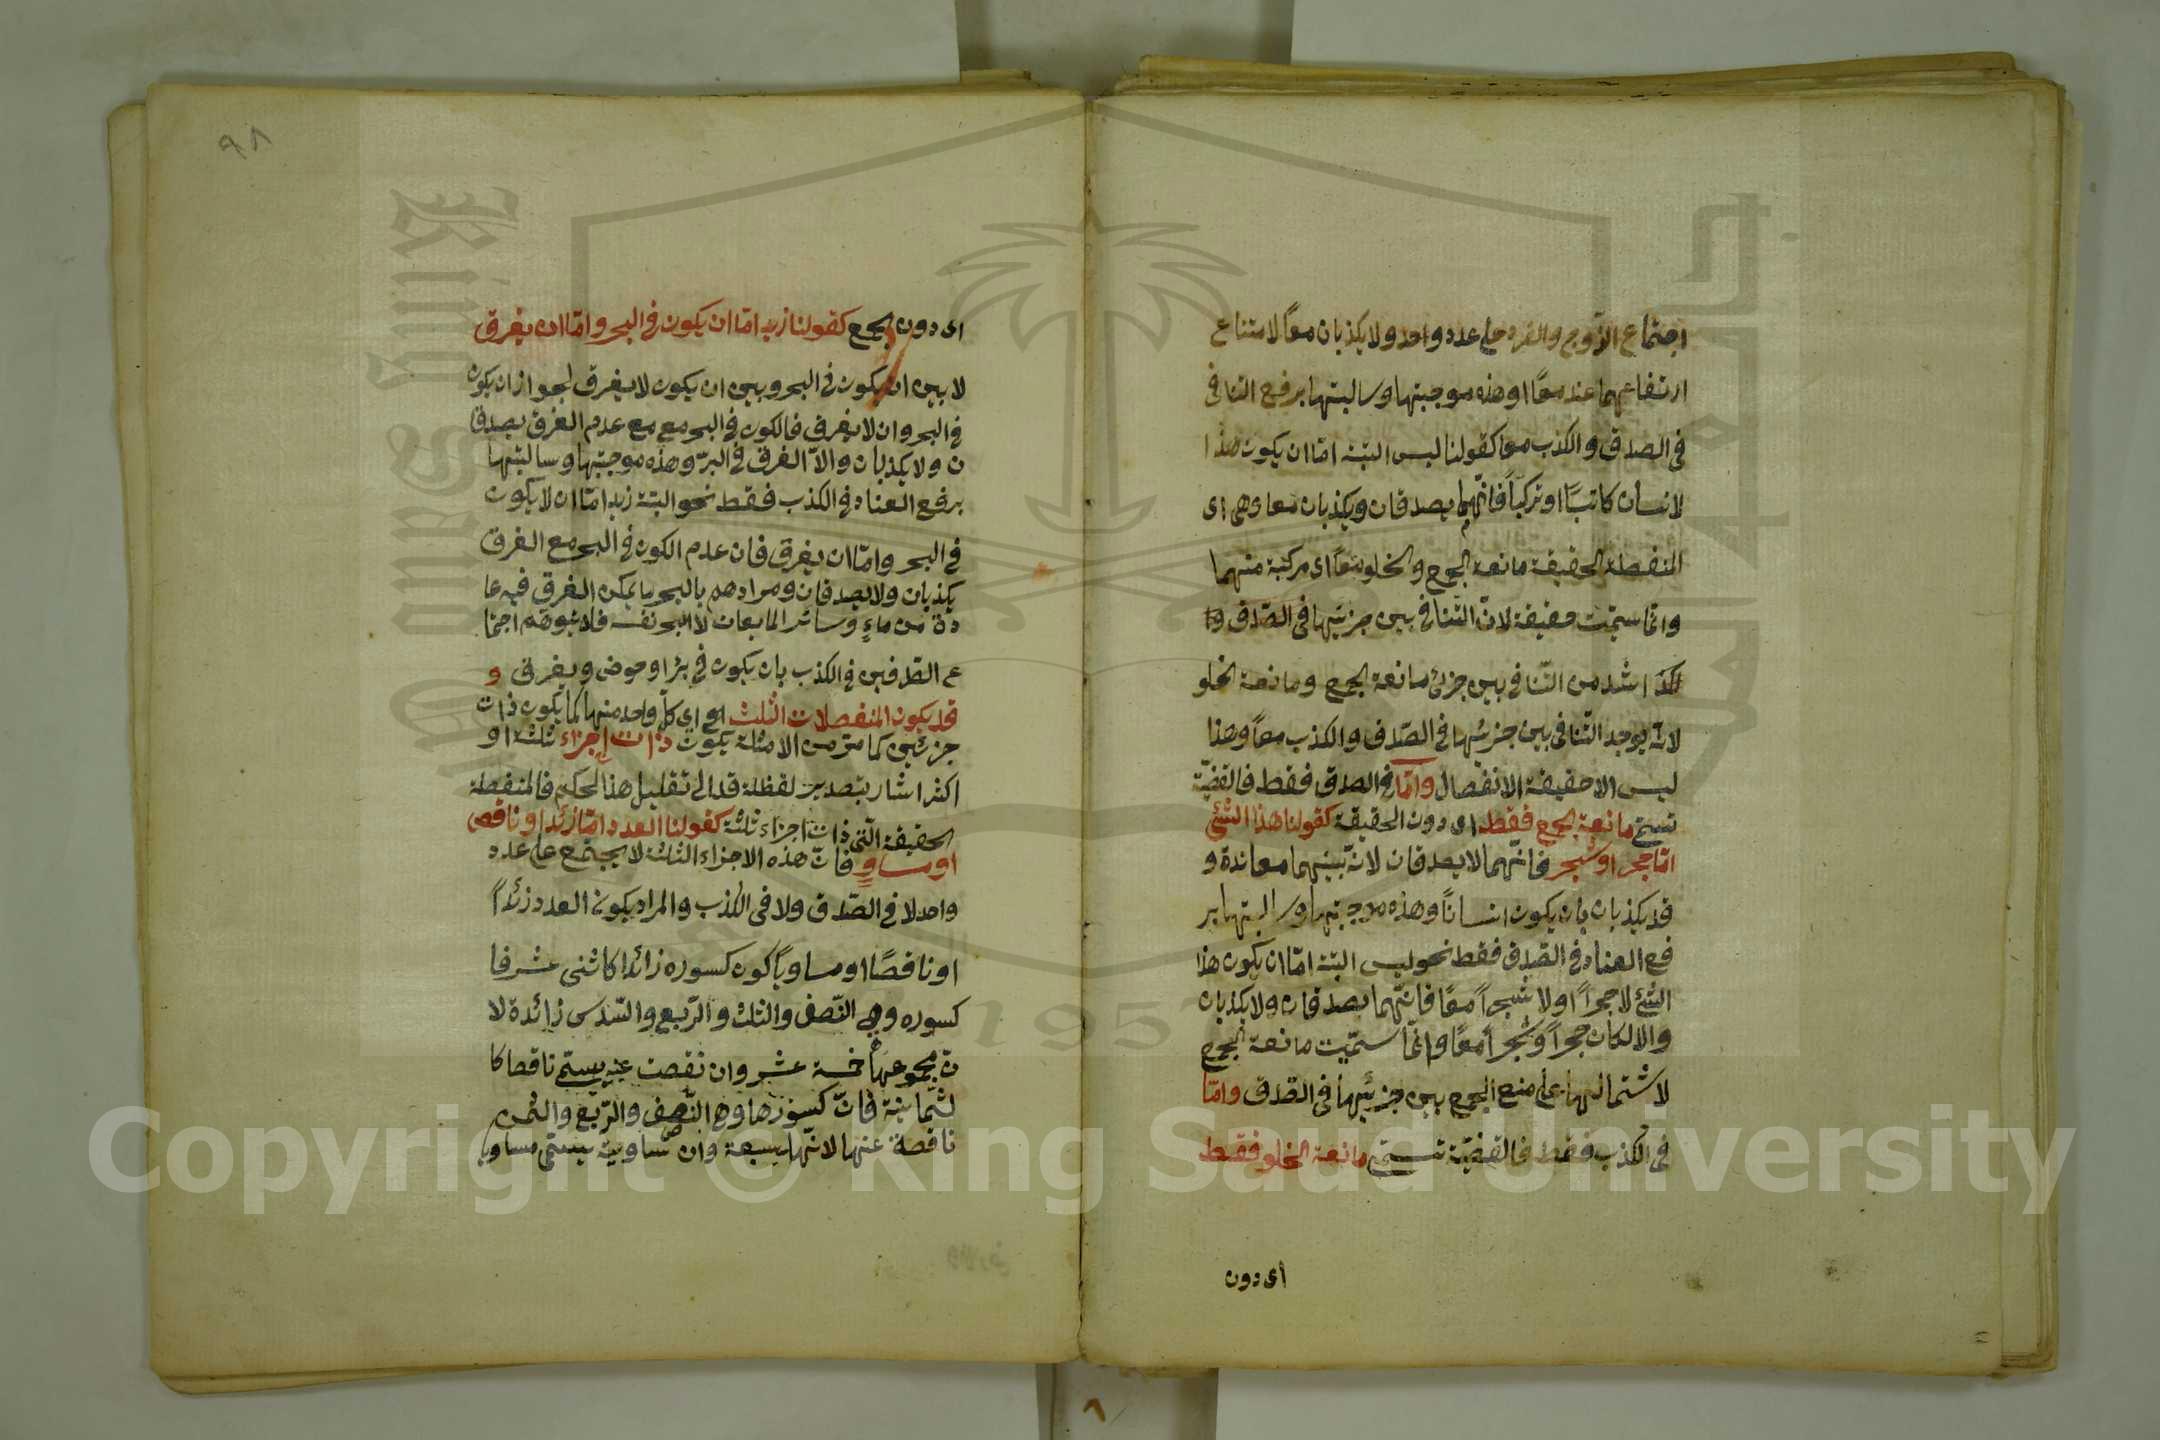 اجتماع الزوج والفرد على عدد واحد ولا يكذبان معًا لامتناع
ارتفاعهما عنه معًا وهذه موجبتها وسالبتها برفع التنافى
فى الصدق والكذب معا كقولنا ليس البتة اما ان يكون هذا
لانسان كاتبًا او تركيًا فانهما يصدقان ويكذبان معا وهى اى
المنفصلة الحقيقة مانعة الجمع والخلو معًا اى مركبة منهما
وانما سميت حقيقة لان التنافى بين جزئيها فى الصدق وا
لكذ اشد من التنافى بين جزئى مانعة الجمع ومانعة الخلو
لانه يوجد التنافى بين جزئيها فى الصدق والكذب معًا وهذا
ليس الا حقيقة الانفصال واما فى الصدق فقط فالقضية
تسمى مانعة الجمع فقط اى دون الحقيقة كقولنا هذا الشئ
اما حجر او شجر فانهما لا يصدقان لان بينهما معاندة و
قد يكذبان بان يكون انسانًا وهذه موجبتها وسالبتها بر
فع العناد فى الصدق فقط نحو ليس البتة اما ان يكون هذا
الشئ لا حجرًا او لا شجرًا معًا فانهما يصدقان ولا يكذبان
والا لكان حجرًا وشجرًا معًا وانما سميت مانعة الجمع
لاشتمالها على منع الجمع بين جزئيها فى الصدق واما
فى الكذب فقط فالقضية تسمى مانعة الخلو فقط
أى دون
٩٨
اى دون الجمع كقولنا زيد اما ان يكون فى البحر واما ان لا يغرق
لا بين ان يكون فى البحر وبين ان يكون لا يغرق لجواز ان يكون
فى البحر وان لا يغرق فالكون فى البحر مع مع عدم الغرق يصدقا
ن ولا يكذبان والا الغرق فى البر وهذه موجبتها وسالبتها
برفع العناد فى الكذب فقط نحو البتة زيد اما ان لا يكون
فى البحر واما ان يغرق فان عدم الكون فى البحر مع الغرق
يكذبان ولا يصدقان ومرادهم بالبحر ما يمكن الغرق فيه عا
دة من ماء وسائر المايعات لا البحر نفسه فلا يتوهم اجتما
ع الطرفين فى الكذب بان يكون فى بئر او حوض ويغرق و
قد يكون المنفصلات الثلث اى كل واحد منها كما يكون ذات
جزئين كما مر من الامثلة يكون ذات اجزاء ثلثة او
اكثر اشار بتصدير لفظة قد الى تقليل هذا الحكم فالمنفصلة
الحقيقة التى ذات اجزاء ثلثة كقولنا العدد اما زائد او ناقص
او مساوٍ فان هذه الاجزاء الثلثة لا يجتمع على عدد
واحد لا فى الصدق ولا فى الكذب والمراد بكون العدد زائدًا
او ناقصًا او مساويًا كون كسوره زائدا كاثنى عشر فا
كسوره وهى النصف والثلث والربع والسدس زائدة لا
ن مجموعها خمسة عشر وان نقصت عنه يسمى ناقصا كا
لثمانية فان كسورها وهى النصف والربع والثمن
ناقصة عنها لانها سبعة وان ساوية يسمى مساويا
Copyright © King Saud University
King Saud
1957